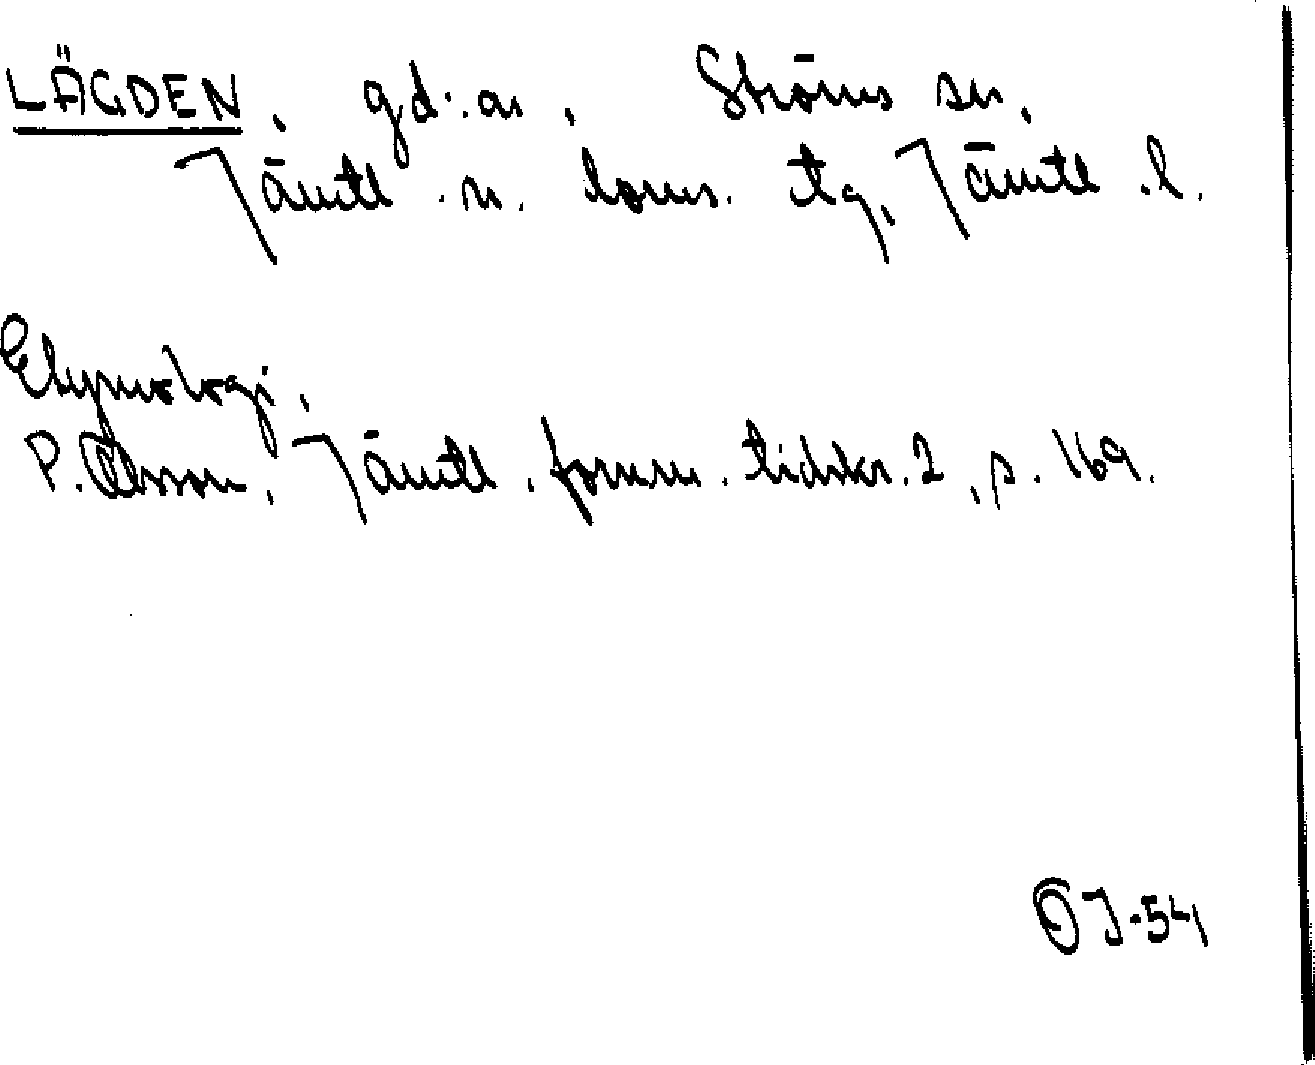 LÄGDEN, gd:ar, Ströms sn,
Jämtl. n. doms. tg, Jämtl. l.
Etymologi.
P. Olsson, Jämtl. fornm. tidskr. 2, s. 169.
ÖJ-54